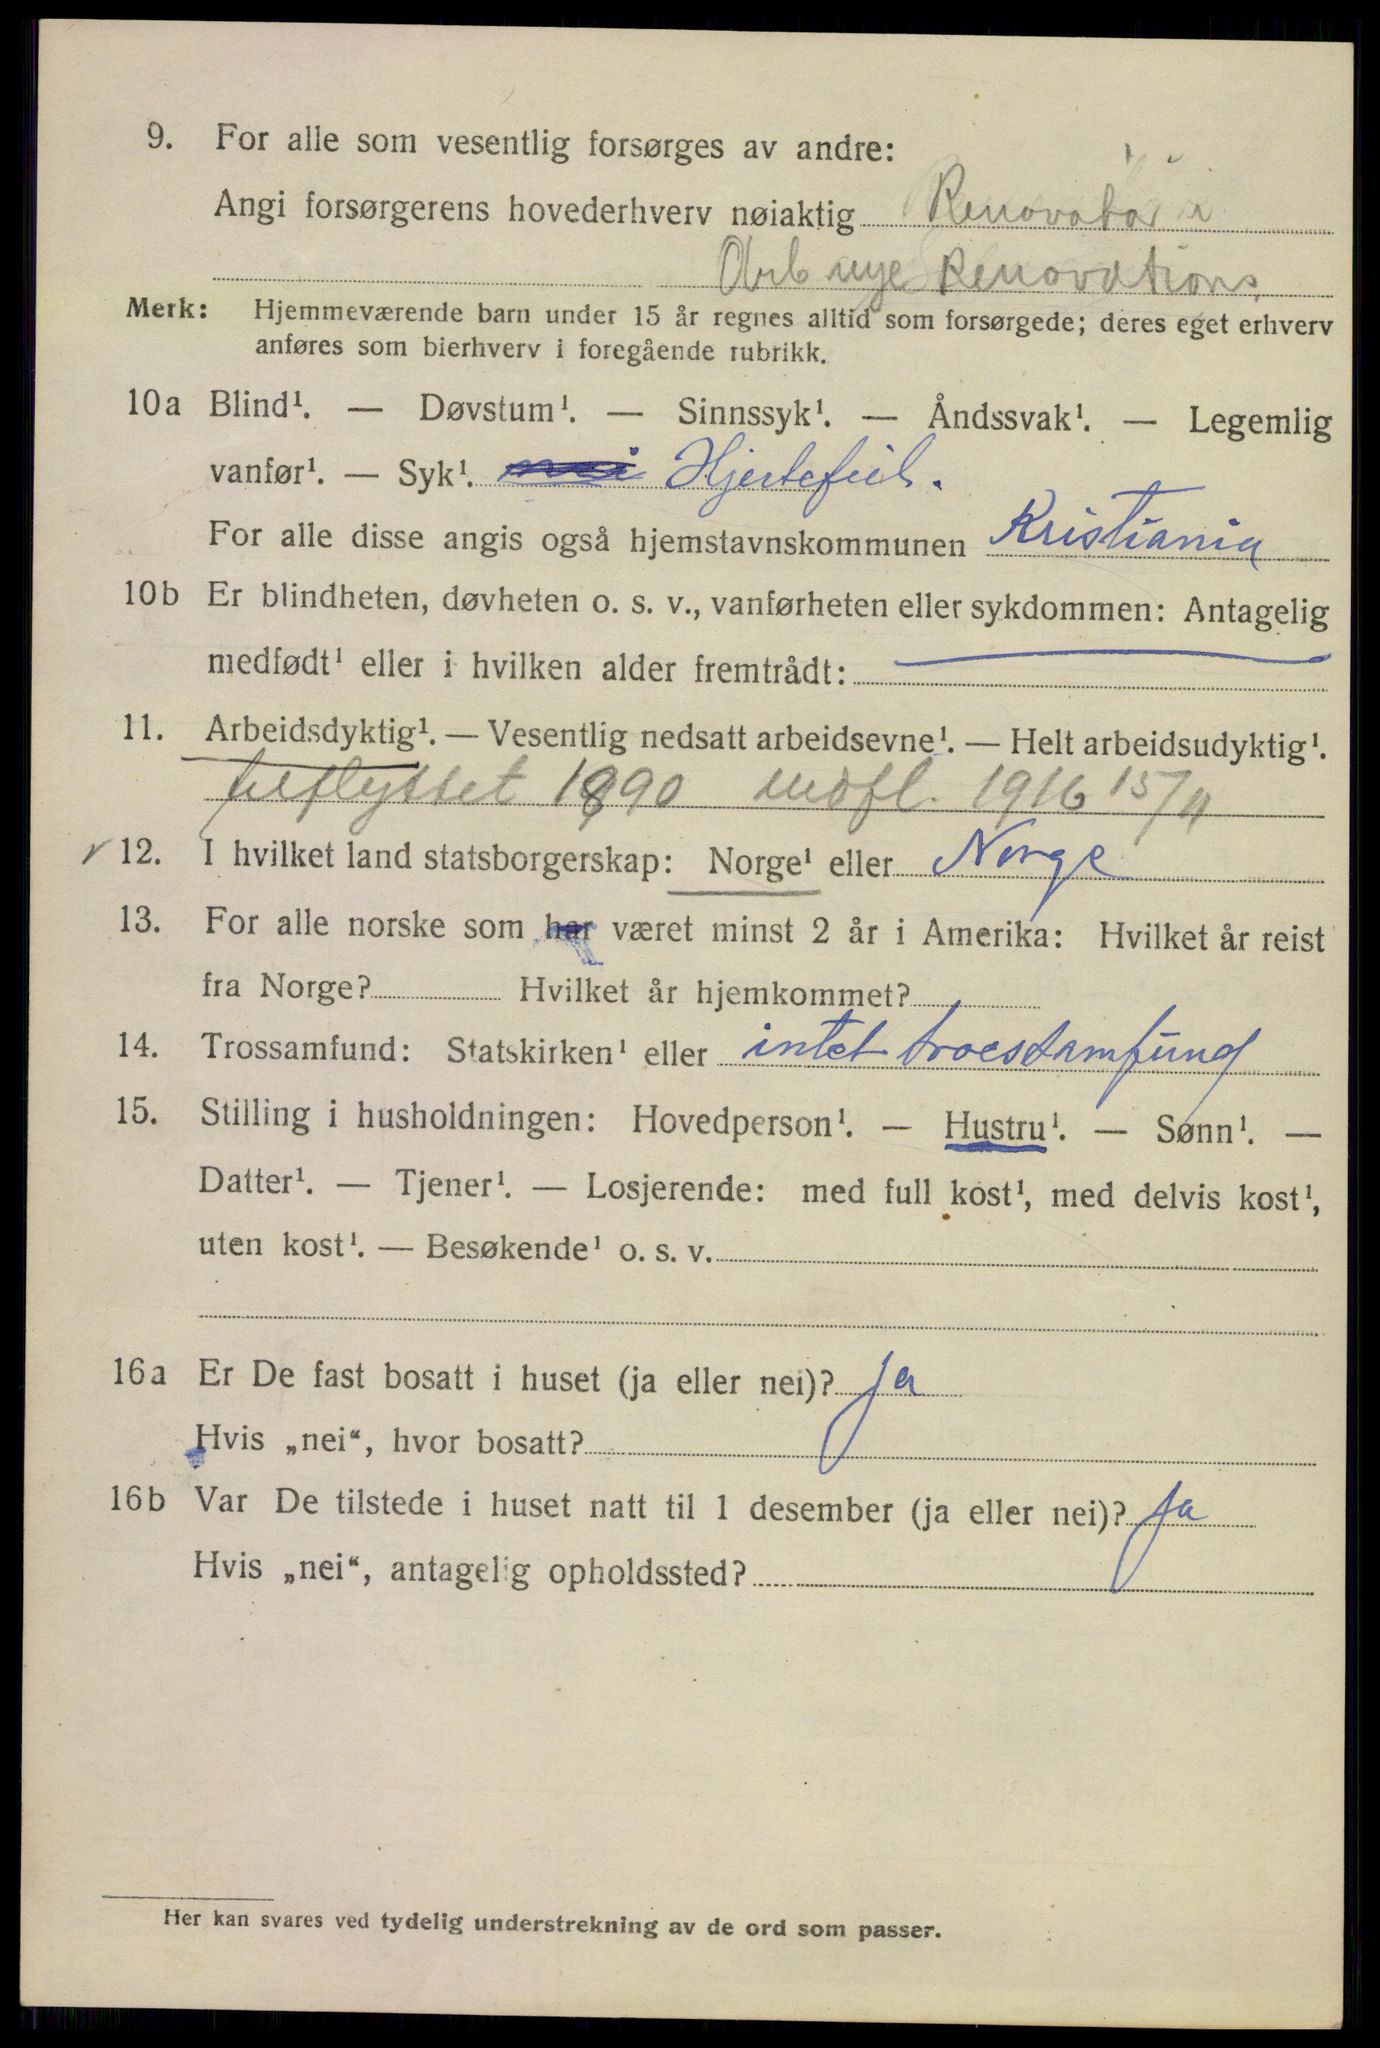 9. For alle som vesentlig forsørges av andre:
Angi forsørgerens hovederhverv nøiaktig Renovatør i
Arb nye Renovations
Merk: Hjemmeværende barn under 15 år regnes alltid som forsørgede; deres eget erhverv
anføres som bierhverv i foregående rubrikk.
10a Blind¹. — Døvstum¹. — Sinnssyk¹. — Åndssvak¹. — Legemlig
vanfør¹. — Syk¹. nei Hjertefeil.
For alle disse angis også hjemstavnskommunen Kristiania
10b Er blindheten, døvheten o. s. v., vanførheten eller sykdommen: Antagelig
medfødt¹ eller i hvilken alder fremtrådt:
11. Arbeidsdyktig¹. — Vesentlig nedsatt arbeidsevne¹. — Helt arbeidsudyktig¹.
tilflyttet 1890 indfl. 1916 15/11
12. I hvilket land statsborgerskap: Norge¹ eller Norge
13. For alle norske som har været minst 2 år i Amerika: Hvilket år reist
fra Norge? Hvilket år hjemkommet?
14. Trossamfund: Statskirken¹ eller intet troessamfund
15. Stilling i husholdningen: Hovedperson¹. — Hustru¹. — Sønn¹. —
Datter¹. — Tjener¹. — Losjerende: med full kost¹, med delvis kost¹,
uten kost¹. — Besøkende¹ o. s. v.
16a Er De fast bosatt i huset (ja eller nei)? Ja
Hvis „nei“, hvor bosatt?
16b Var De tilstede i huset natt til 1 desember (ja eller nei)? Ja
Hvis „nei“, antagelig opholdssted?
Her kan svares ved tydelig understrekning av de ord som passer.